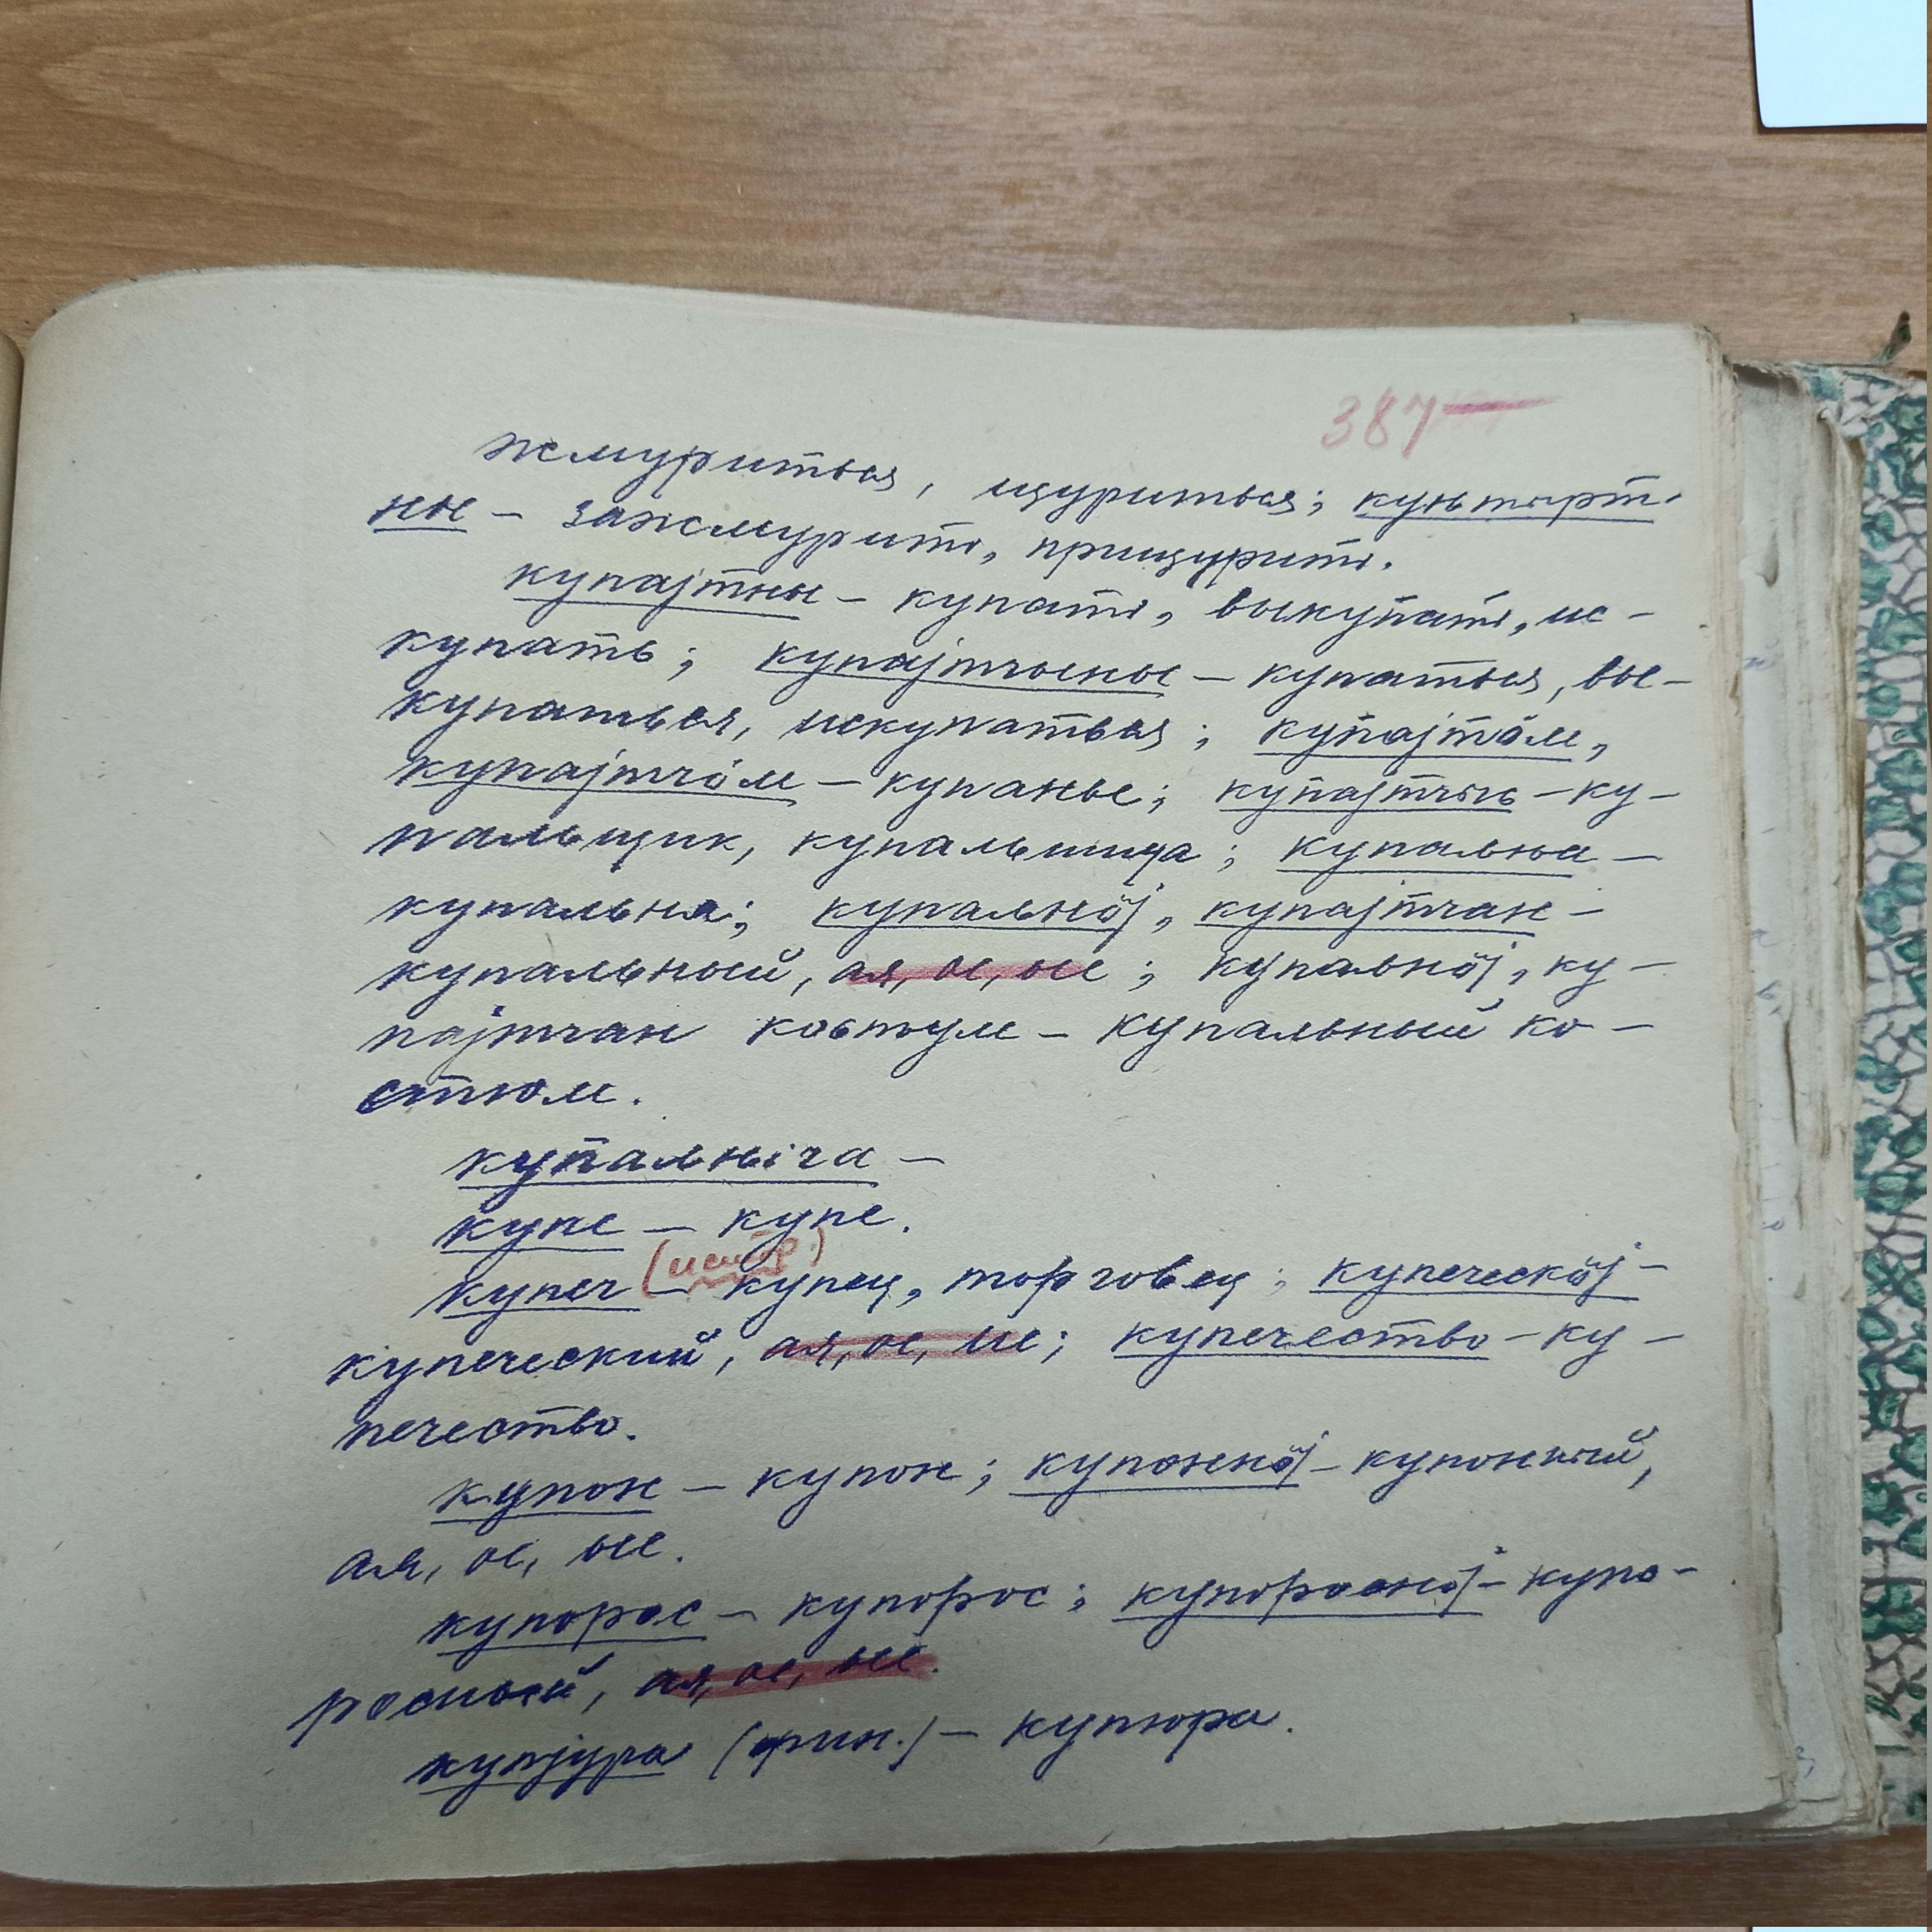 387
жмуриться, щуриться; куньтырт-
ны – зажмурить, прищурить.
купајтны – купать, выкупать, ис-
купать; купајтчыны – купаться, вы-
купаться, искупаться; купајтӧм,
купајтчӧм – купанье; купајтчыс – ку-
пальщик, купальщица; купальна –
купальня; купальнӧј, купајтчан –
купальный, ая, ое, ые; купальнӧј, ку-
пајтчан костум – купальный ко-
стюм.
купальніча –
купе – купе.
(истор.)
купеч – купец, торговец; купеческӧј –
купеческий, ая, ое, ие; купечество – ку-
печество.
купон – купон; купоннӧј – купонный,
ая, ое, ые.
купорос – купорос; купороснӧј – купо-
росный, ая, ое, ые.
купјура (фин.) – купюра.